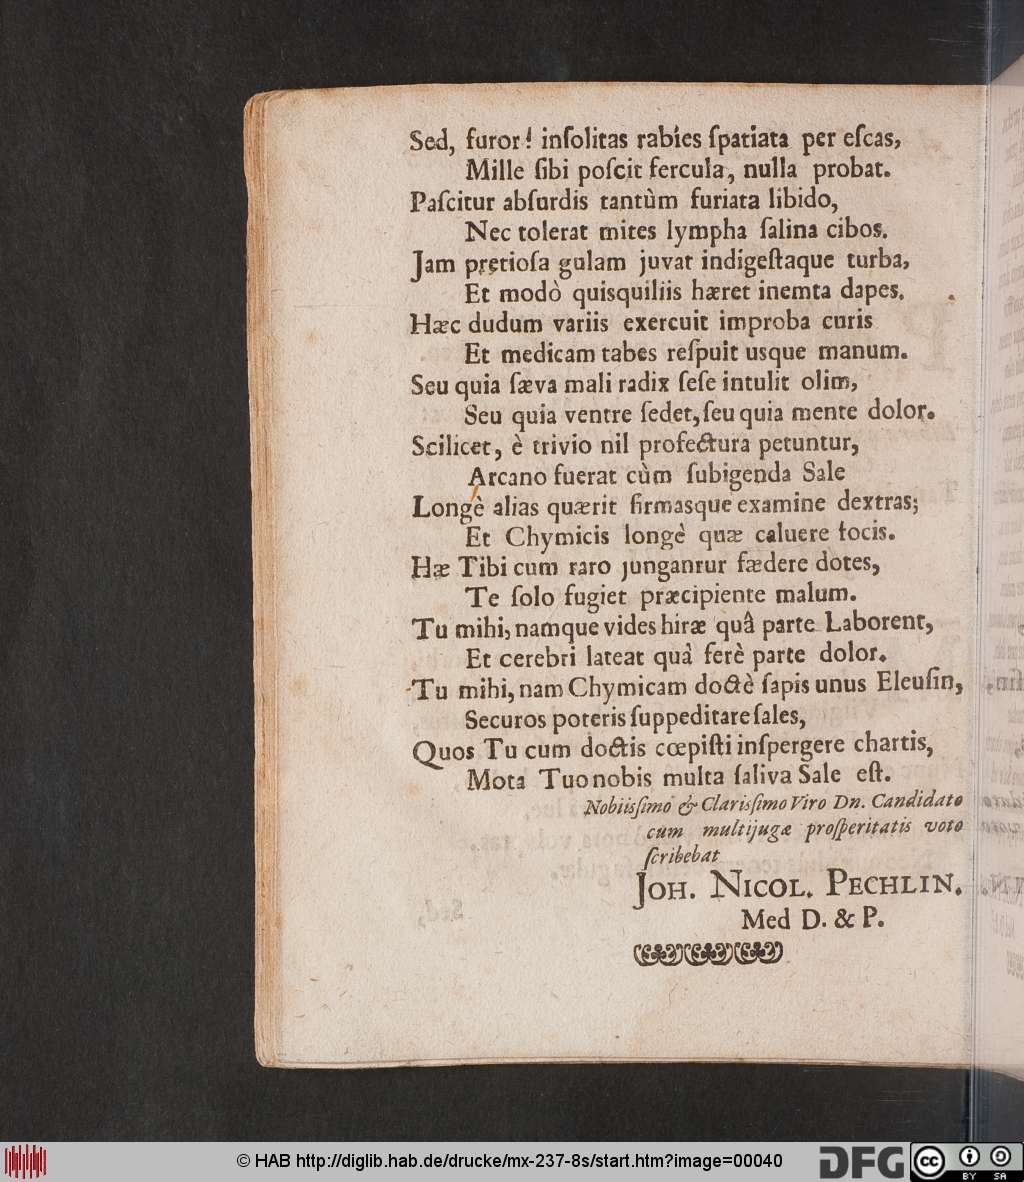 Sed, furor! inſolitas rabies ſpatiata per eſcas,
Mille ſibi poſcit fercula, nulla probat.
Paſcitur abſurdis tantùm furiata libido,
Nec tolerat mites lympha ſalina cibos.
Jam pretioſa gulam juvat indigeſtaque turba,
Et modò quisquiliis hæret inemta dapes.
Hæc dudum variis exercuit improba curis
Et medicam tabes reſpuit usque manum.
Seu quia ſæva mali radix ſeſe intulit olim,
Seu quia ventre ſedet, ſeu quia mente dolor.
Scilicet, è trivio nil profectura petuntur,
Arcano fuerat cùm ſubigenda Sale
Longè alias quærit firmasque examine dextras;
Et Chymicis longè quæ caluere focis.
Hæ Tibi cum raro junganrur fædere dotes,
Te ſolo fugiet præcipiente malum.
Tu mihi, namque vides hiræ quâ parte Laborent,
Et cerebri lateat quà ferè parte dolor.
Tu mihi, nam Chymicam doctè ſapis unus Eleuſin,
Securos poteris ſuppeditare ſales,
Quos Tu cum doctis cœpiſti inſpergere chartis,
Mota Tuo nobis multa ſaliva Sale eſt.
Nobiisſimo & Clarisſimo Viro Dn. Candidato
cum multijugæ proſperitatis voto
ſcribebat
JOH. NICOL. PECHLIN.
Med D. & P.
© HAB http://diglib.hab.de/drucke/mx-237-8s/start.htm?image=00040
DFG
cc BY SA